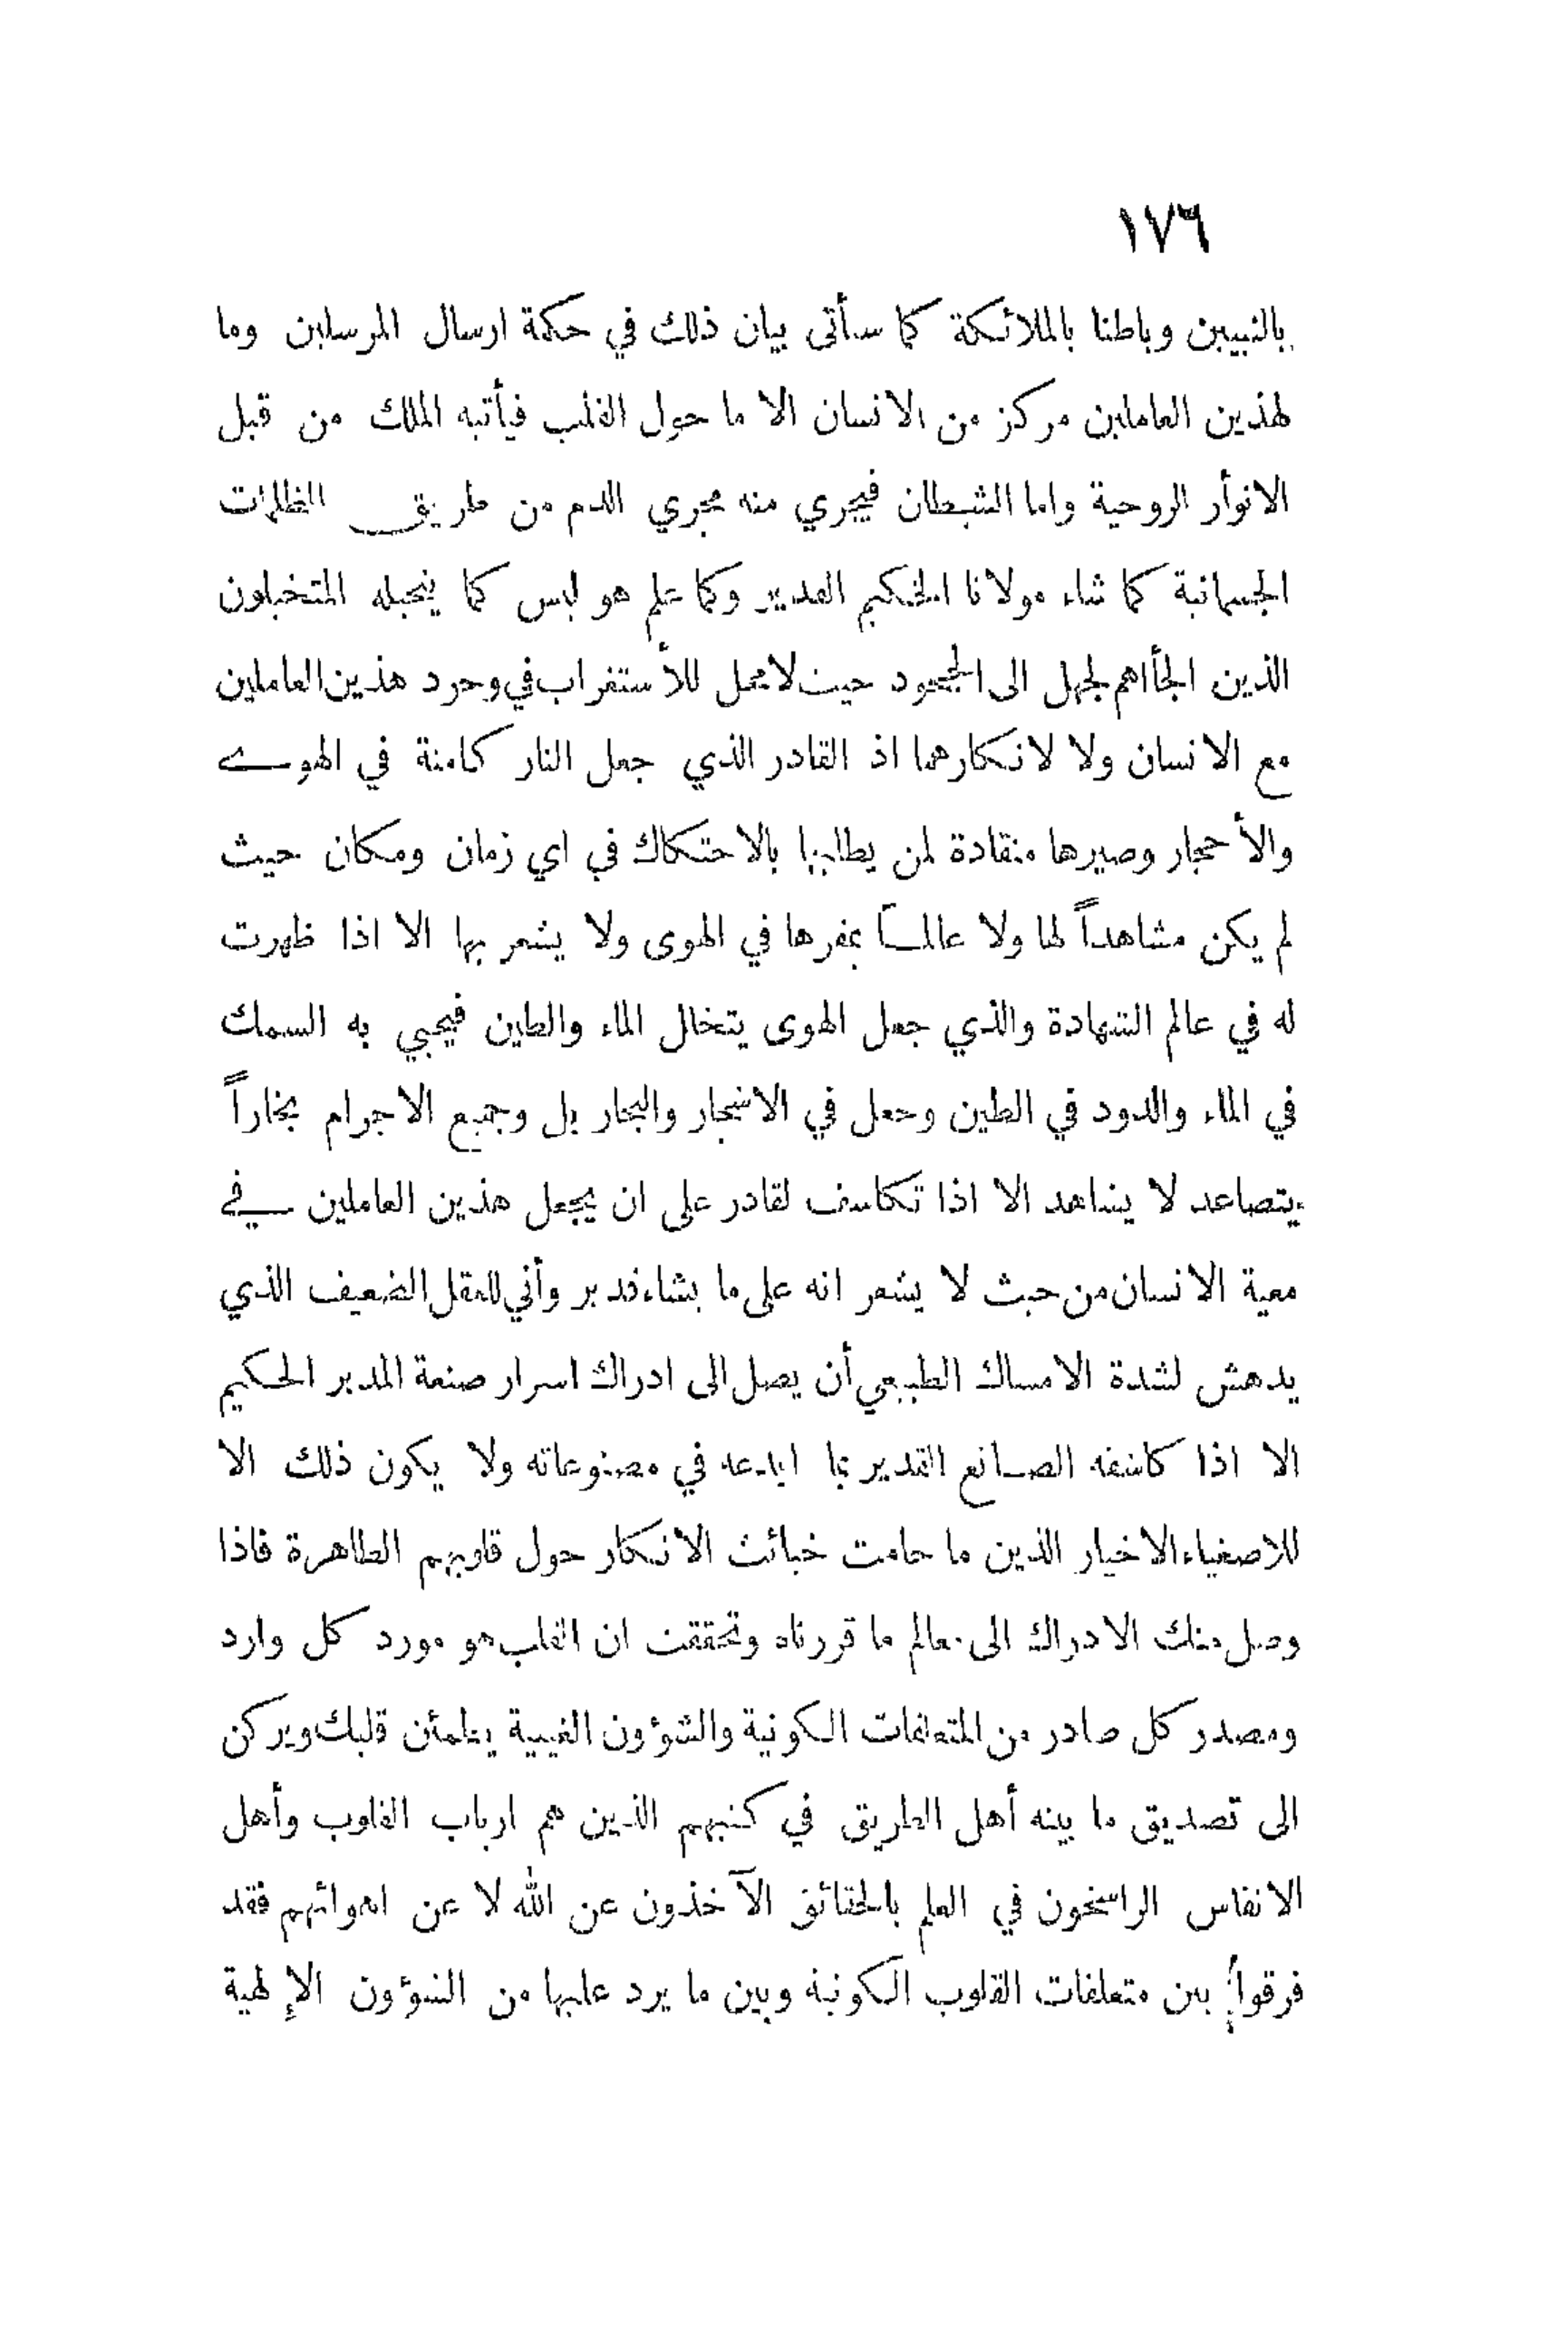 ١٧٦
بالنبيين وباطنا بالملائكة كما سأتى بيان ذلك في حكمة ارسال المرسلين وما
لهذين العاملين مركز من الانسان الا ما حول القلب فيأتيه الملك من قبل
الانوأر الروحية واما الشيطان فيجري منه مجري الدم من طريق الظلمات
الجسمانية كما شاء مولانا الحكيم القدير وكما علم هو ليس كما يتخيله المتخيلون
الذين الجأاهم لجهل الى الجحود حيث لا محل للأستغراب في وجود هذين العاملين
مع الانسان ولا لانكارهما اذ القادر الذي جعل النار كامنة في الهوى
والأحجار وصيرها منقادة لمن يطلبها بالاحتكاك في اي زمان ومكان حيث
لم يكن مشاهداً لها ولا عالماً بمقرها في الهوى ولا يشعر بها الا اذا ظهرت
له في عالم الشهادة والذي جعل الهوى يتخال الماء والطين فيحيي به السمك
في الماء والدود في الطين وجعل في الاشجار والبحار بل وجميع الاجرام بخاراً
يتصاعد لا يشاهد الا اذا تكاسف لقادر على ان يجعل هذين العاملين في
معية الانسان من حيث لا يشعر انه على ما يشاء قدير وأني للعقل الضعيف الذي
يدهش لشدة الامساك الطبيعي أن يصل الى ادراك اسرار صنعة المدبر الحكيم
الا اذا كاشفه الصانع القدير بما ابدعه في مصنوعاته ولا يكون ذلك الا
للاصفياء الاخيار الذين ما حامت خبائث الانكار حول قلوبهم الطاهرة فاذا
وصل منك الادراك الى معالم ما قررناه وتحققت ان القلب هو مورد كل وارد
ومصدر كل صادر من المتعلقات الكونية والشؤون الغيبية يطمئن قلبك ويركن
الى تصديق ما بينه أهل الطريق في كتبهم الذين هم ارباب القلوب وأهل
الانفاس الراسخون في العلم بالحقائق الآخذون عن الله لا عن اهوائهم فقد
فرقوا بين متعلقات القلوب الكونية وبين ما يرد عليها من الشؤون الإلهية